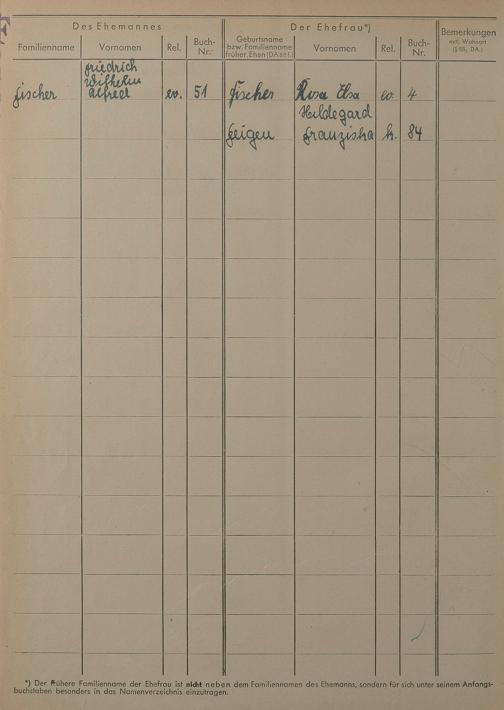 Des Ehemannes
Der Ehefrau*)
Familienname
Vornamen
Rel.
Buch-
Nr.
Geburtsname
bzw. Familienname
früher. Ehen (DA § 61.)
Vornamen
Rel.
Buch-
Nr.
Bemerkungen
evtl. Wohnort
(§ 55, DA.)
Friedrich
Wilhelm
Fischer Alfred ev. 51 Fischer Rosa Elsa ev. 4
Hildegard
Feigen Franziska k. 84
*) Der frühere Familienname der Ehefrau ist nicht neben dem Familiennamen des Ehemanns, sondern für sich unter seinem Anfangs-
buchstaben besonders in das Namenverzeichnis einzutragen.